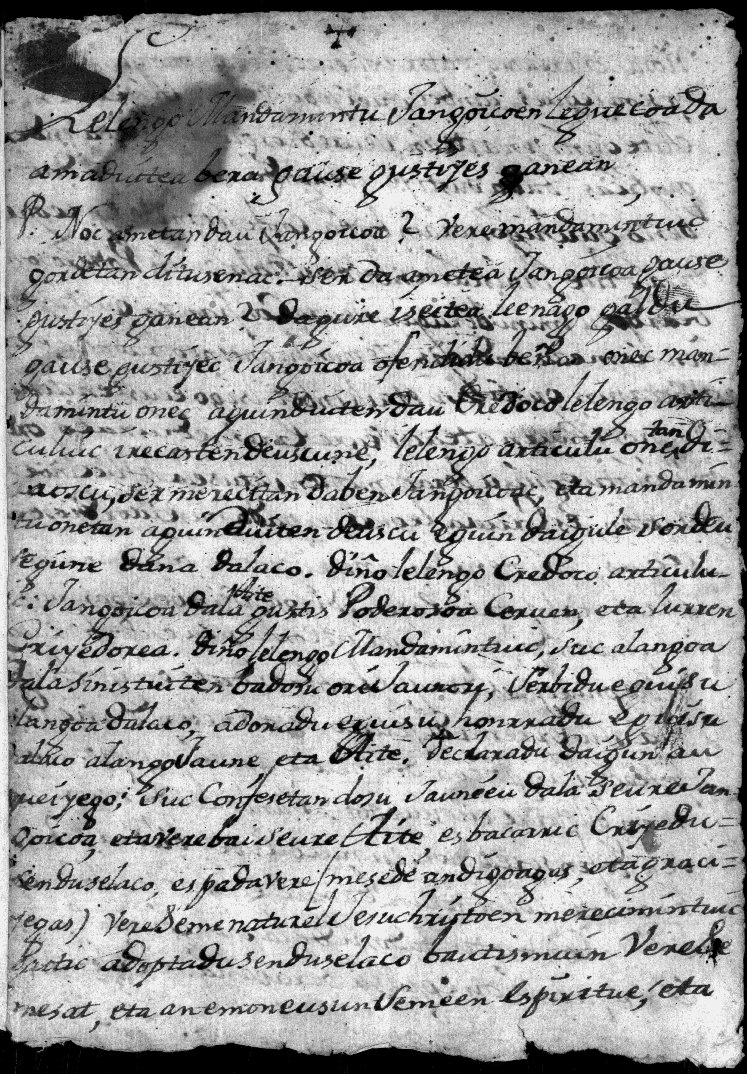 Lelengo Mandamintu Jangoicoen leguecoa da
amaductea bera gause gustijes ganean
P. Noc ametan dau Jangoicoa? Vere mandamintuic
gordetan ditusenac. iser da ametea Jangoicoa gause
gustijes ganean? da gure iseitea lenago galdu
gause gustijec Jangoicoa ofendidu baño. onec man-
damintu onec aguinduten dau Credoco lelengo arti-
culuic irecasten deuscune, lelengo articulu onetan di-
 ser merecitan daben Jangoicoac, eta mandamin
tu onetan aguinduiten deuscu eguin daigule sordeu
segune dana dalaco. diño lelengo Credoco articulu-
c: Jangoicoa dala Aite gustis Poderosoa Ceruen, eta lurren
Criyedorea. diño lelengo Mandamintuic, suc alangoa
dala sinistuiten badosu ori Jaunori, serbidu eguisu
alangoa dalaco, adoradu eguisu, honrradu eguisu
dalaco alango Jaune, eta Aite. Declaradu daigun au
gueiyego: suc Confesetan dosu Jauneu dala Seure Jan
goicoa, eta vere bai seure Aite, es bacarric Criyedu-
senduselaco, espada vere (mesede andigoagus, eta graci-
jegas) vere Seme naturel Jesuchristoen merecimintuic
gaitic adoptadu senduselaco bautismuin Vere Se
mesat, eta an emon eusun Semeen Espiritue, eta